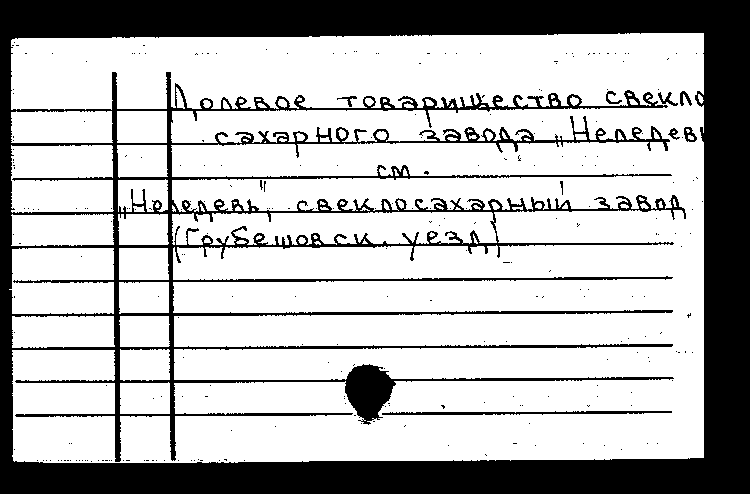 Долевое товарищество свекло
сахарного завода „Неледевь
см.
„Неледевь", свеклосахарный завод
(Грубешовск. уезд)